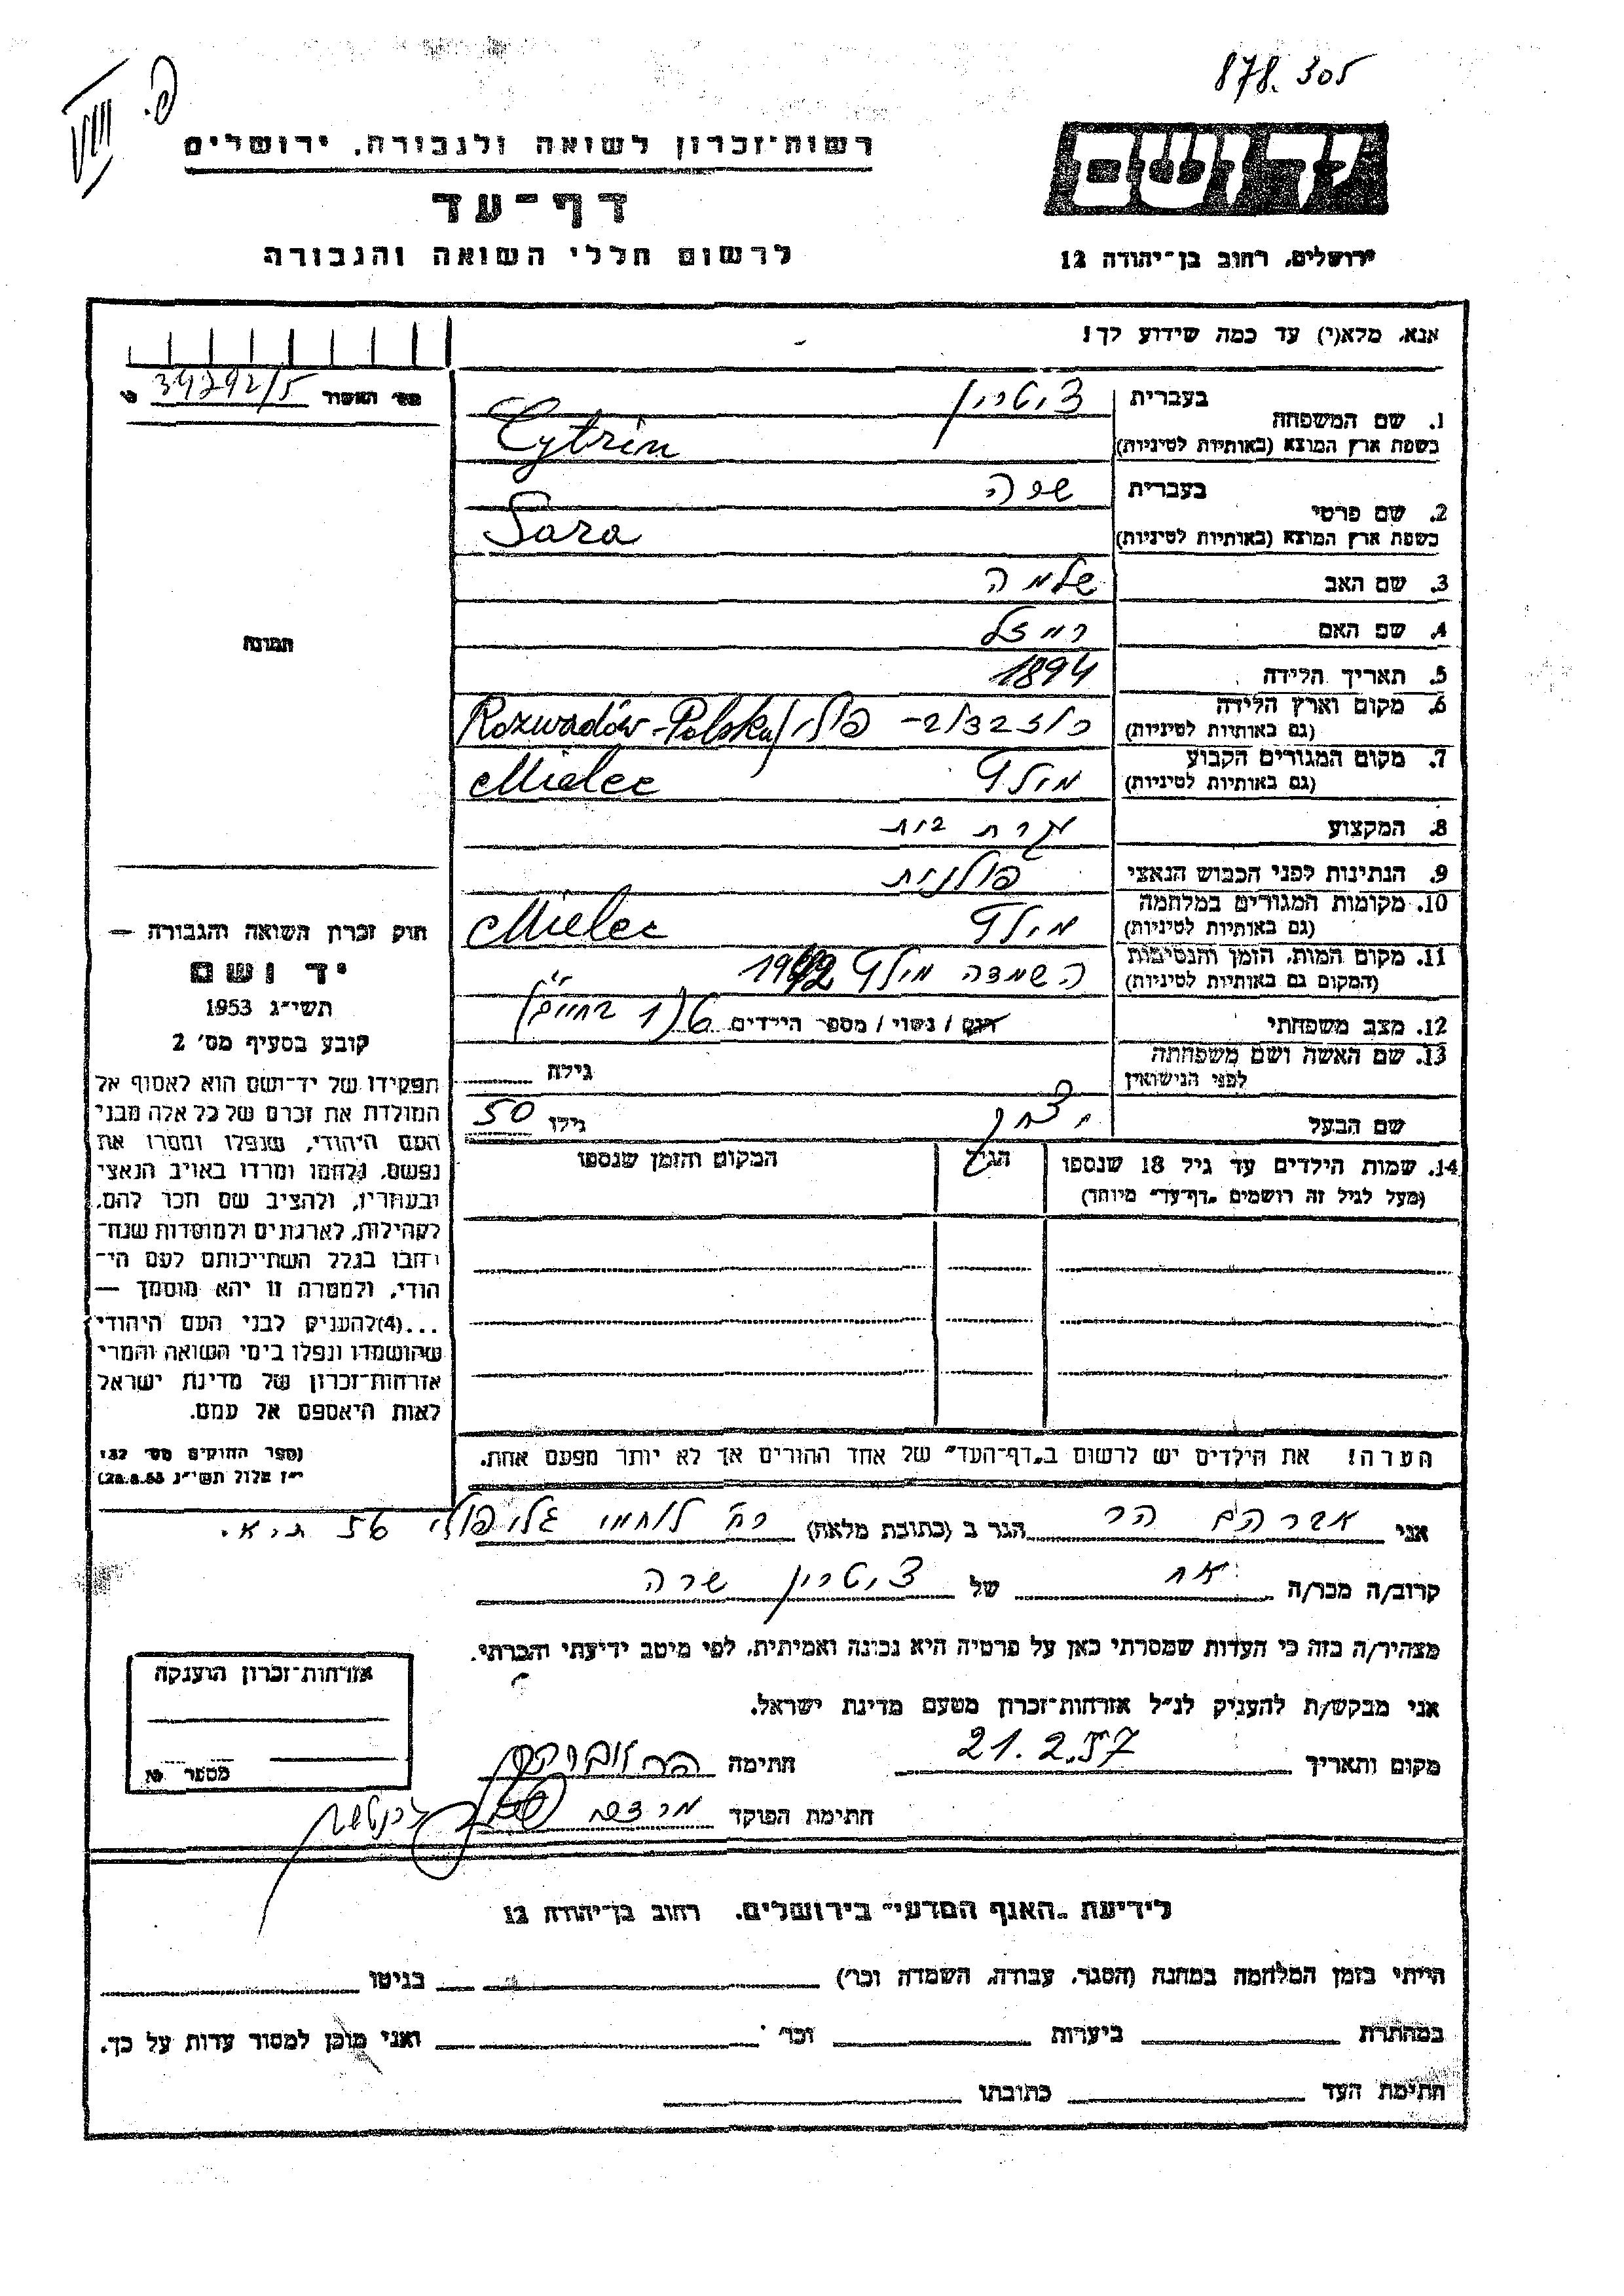 878.305
רשות־זכרון לשואה ולגבורה, ירושלים
דף־עד
לרשום חללי השואה והגבורה
ירושלים, רחוב בן־יהודה 12
אנא, מלא(י) עד כמה שידוע לך!
מס׳ האשור 34292/5
1. שם המשפחה
בעברית ציטרין
בשפת ארץ המוצא (באותיות לטיניות) Cytrin
2. שם פרטי
בעברית שרה
בשפת ארץ המוצא (באותיות לטיניות) Sara
3. שם האב שלמה
4. שם האם
5. תאריך הלידה 1894
6. מקום וארץ הלידה
(גם באותיות לטיניות) פולין Rozwadów-Polska
7. מקום המגורים הקבוע
(גם באותיות לטיניות) מילץ Mielec
8. המקצוע עקרת בית
9. הנתינות לפני הכבוש הנאצי פולנית
10. מקומות המגורים במלחמה
(גם באותיות לטיניות) מילץ Mielec
11. מקום המות, הזמן והנסיבות
(המקום גם באותיות לטיניות) השמדה מילץ 1942
12. מצב משפחתי רווק / נשוי / מספר הילדים 6 (1 בחיים)
13. שם האשה ושם משפחתה
לפני הנישואין
גילה
שם הבעל יצחק גילו 50
14. שמות הילדים עד גיל 18 שנספו
(מעל לגיל זה רושמים „דף־עד״ מיוחד)
הגיל
המקום והזמן שנספו
הערה! את הילדים יש לרשום ב„דף־העד״ של אחד ההורים אך לא יותר מפעם אחת.
תמונה
חוק זכרון השואה והגבורה —
יד ושם
תשי״ג 1953
קובע בסעיף מס׳ 2
תפקידו של יד־ושם הוא לאסוף אל
המולדת את זכרם של כל אלה מבני
העם היהודי, שנפלו ומסרו את
נפשם, נלחמו ומרדו באויב הנאצי
ובעוזריו, ולהציב שם וזכר להם,
לקהילות, לארגונים ולמוסדות שנח־
רבו בגלל השתייכותם לעם הי־
הודי, ולמטרה זו יהא מוסמך —
...(4)להעניק לבני העם היהודי
שהושמדו ונפלו בימי השואה והמרי
אזרחות־זכרון של מדינת ישראל
לאות היאספם אל עמם.
(ספר החוקים מס׳ 132,
י״ז אלול תשי״ג 28.8.53)
אני אברהם הר הגר ב (כתובת מלאה) רח׳ לוחמי גליפולי 56 ת״א.
קרוב/ה מכר/ה אח של ציטרין שרה
מצהיר/ה בזה כי העדות שמסרתי כאן על פרטיה היא נכונה ואמיתית, לפי מיטב ידיעתי והכרתי.
אני מבקש/ת להעניק לנ״ל אזרחות־זכרון מטעם מדינת ישראל.
מקום ותאריך 21.2.57 חתימה
חתימת הפוקד
אזרחות־זכרון הוענקה
מספר
לידיעת „האגף המדעי״ בירושלים, רחוב בן־יהודה 12
הייתי בזמן המלחמה במחנה (הסגר, עבודה, השמדה וכו׳) בגיטו
במחתרת ביערות וכו׳ ואני מוכן למסור עדות על כך.
חתימת העד כתובתו